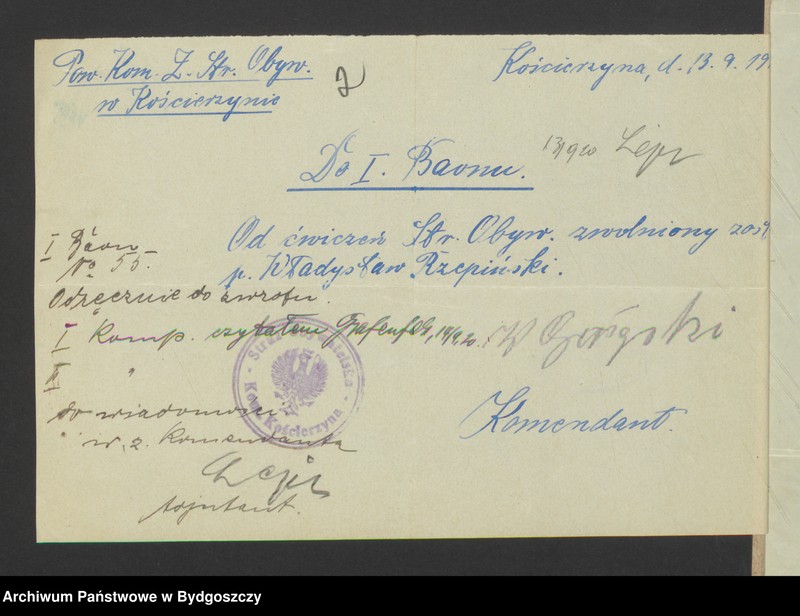 Pow. Kom. Z. Str. Obyw.
w Kościerzynie
2
Kościerzyna, d. 13. 9. 19
13/9 20
Do I. Baonu.
Od ćwiczeń Str. Obyw. zwolniony zos
p. Władysław Rzepiński.
I Baon
No 55.
Odręcznie do zwrotu.
I Komp. czytałem
II "
do wiadomości
w z. Komendanta
Adjutant.
Straż Obywatelska
Kom. Kościerzyna
Komendant.
Archiwum Państwowe w Bydgoszczy